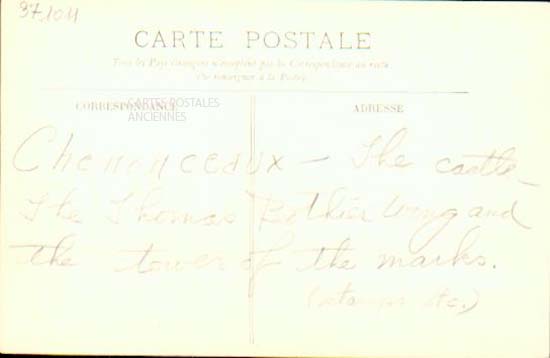 37.1011
CARTE POSTALE
Tous les Pays étrangers n'acceptent pas la Correspondance au recto
(Se renseigner à la Poste)
CORRESPONDANCE
ADRESSE
CARTES POSTALES
ANCIENNES
Chenonceaux — The castle —
The Thomas Bothier Wing and
the tower of the marks.
(stamps etc.)